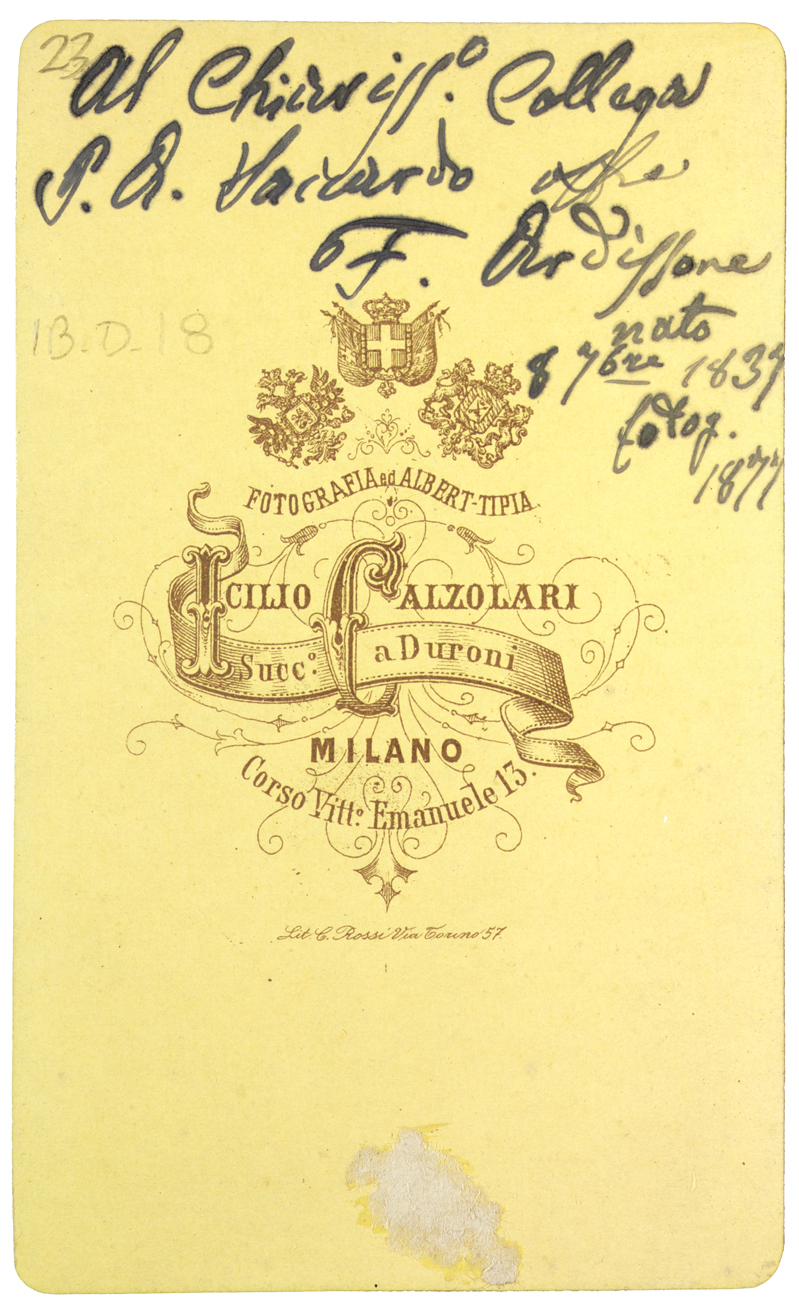 23
Al Chiariss.º Collega
P. A. Saccardo offre
F. Ardissone
nato
8 7bre 1837
fotog.
1877
1B.D.18
FOTOGRAFIA ed ALBERT-TIPIA
ICILIO CALZOLARI
Succ.º a Duroni
MILANO
Corso Vitt.º Emanuele 13.
Lit. C. Rossi Via Torino 57.